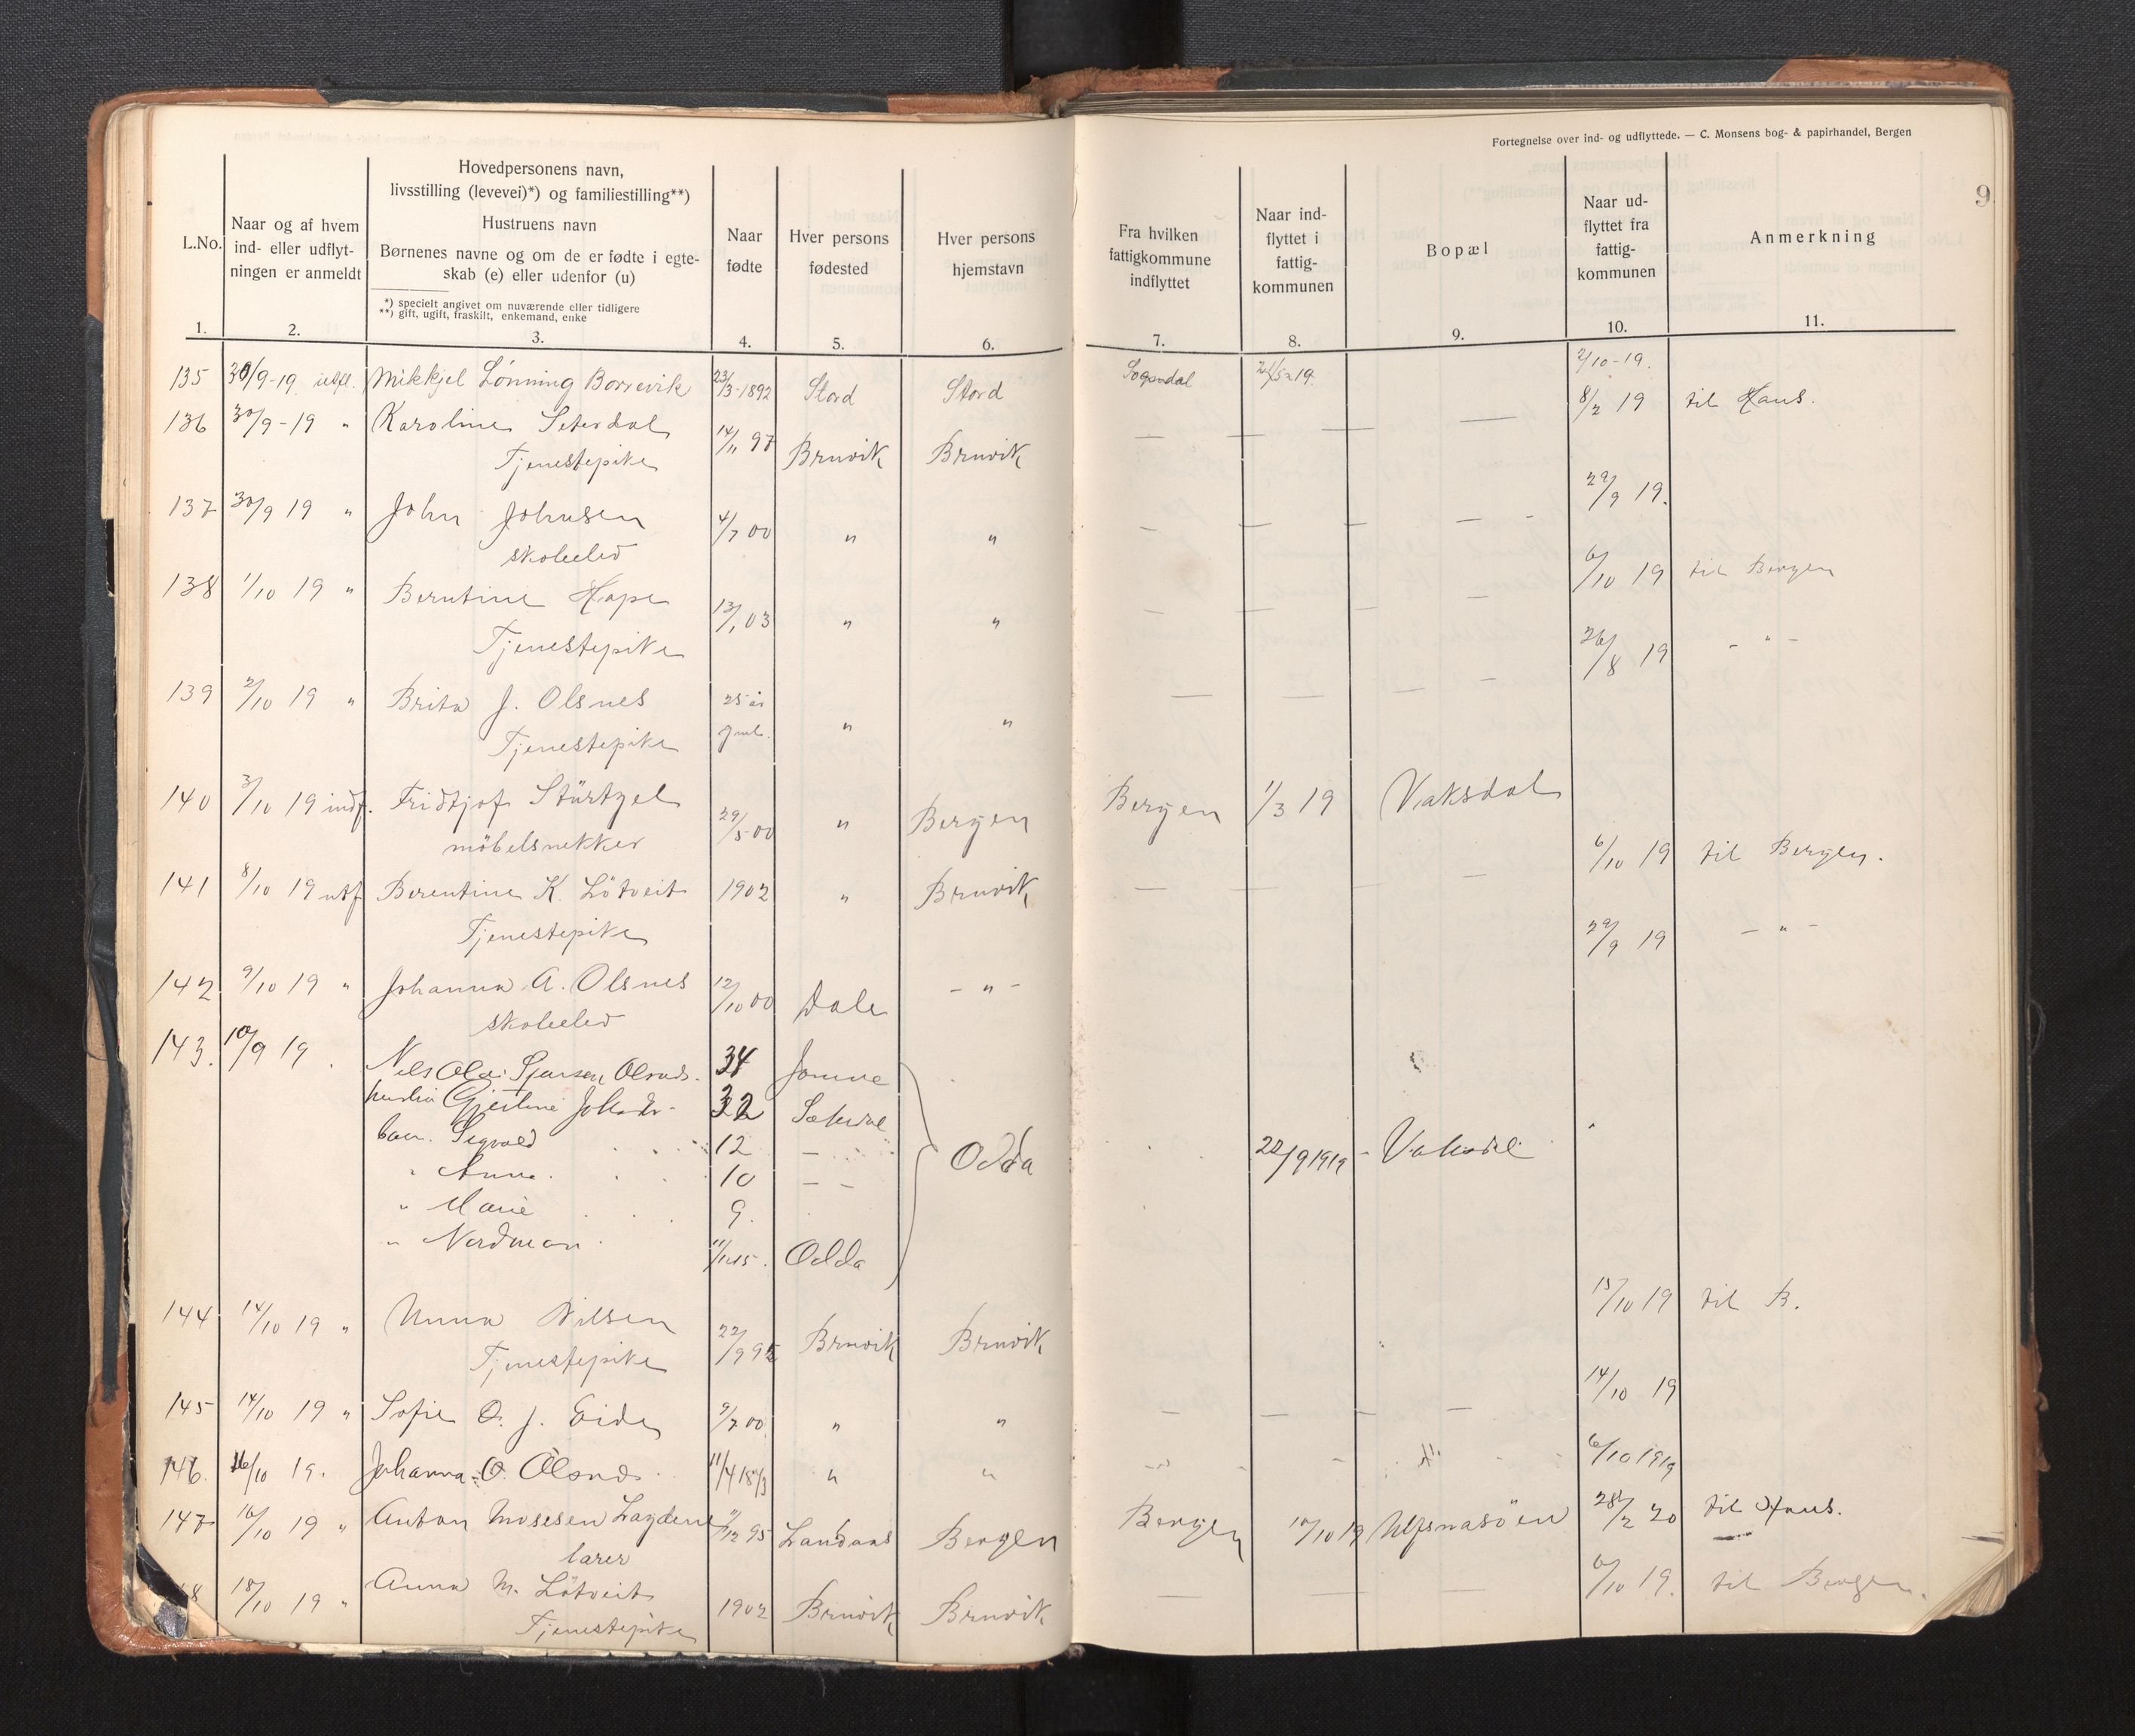 Fortegnelse over ind- og udflyttede. — C. Monsens bog- & papirhandel, Bergen
9
L.No.
Naar og af hvem
ind- eller udflyt-
ningen er anmeldt
Hovedpersonens navn,
livsstilling (levevei)*) og familiestilling**)
Hustruens navn
Børnenes navne og om de er fødte i egte-
skab (e) eller udenfor (u)
*) specielt angivet om nuværende eller tidligere
**) gift, ugift, fraskilt, enkemand, enke
Naar
fødte
Hver persons
fødested
Hver persons
hjemstavn
Fra hvilken
fattigkommune
indflyttet
Naar ind-
flyttet i
fattig-
kommunen
Bopæl
Naar ud-
flyttet fra
fattig-
kommunen
Anmerkning
1. 2. 3. 4. 5. 6. 7. 8. 9. 10. 11.
135 30/9-19 utfl. Mikkjel Lønning Borrevik 23/3-1892 Stord Stord Sogndal 2/10-19.
136 30/9-19 " Karoline Seterdal 14/11 97 Bruvik Bruvik — — — — 8/2 19 til Haus.
Tjenestepike
137 30/9 19 " John Johnsen 4/7 00 " " — — — — 29/9 19.
skoleelev
138 1/10 19 " Berntine Hope 13/1 03 " " — — — — 6/10 19 til Bergen
Tjenestepike
139 2/10 19 " Brita J. Olsnes 25 år " " — — — — 26/8 19 - " -
Tjenestepike gml.
140 3/10 19 indf. Fridtjof Stürtzel 29/5 00 " Bergen Bergen 1/3 19 Vaksdal
möbelsnekker
141 8/10 19 utf Berentine K. Lötveit 1902 " Bruvik — — — — 6/10 19 til Bergen.
Tjenestepike
142 9/10 19 " Johanna A. Olsnes 12/10 00 Dale - " - 29/9 19 - " -
skoleelev
143. 10/9 19. Nils Olai 34
32
barn. Sigvald 12 — Odda 22/9 1919 - Vaksdal
" Anna. 10 — —
" Marie 9.
" Nordman Odda
144 14/10 19 " Anna Nilsen 22/9 95 Bruvik Bruvik 15/10 19 til B.
Tjenestepike
145 14/10 19 " Sofie O. J. Eide 9/7 00 " " — — — — 14/10 19
146. 16/10 19. Johanna O. Olsnes. " " 6/10 1919
147 16/10 19 " Anton Mosesen Landaas Bergen Bergen 10/10 19 Ulfsnasöen 28/2 20 til Haus.
lærer
18/10 19 " Anna M. Lötveit 1902 Bruvik Bruvik — — — 6/10 19. til Bergen.
Tjenestepike